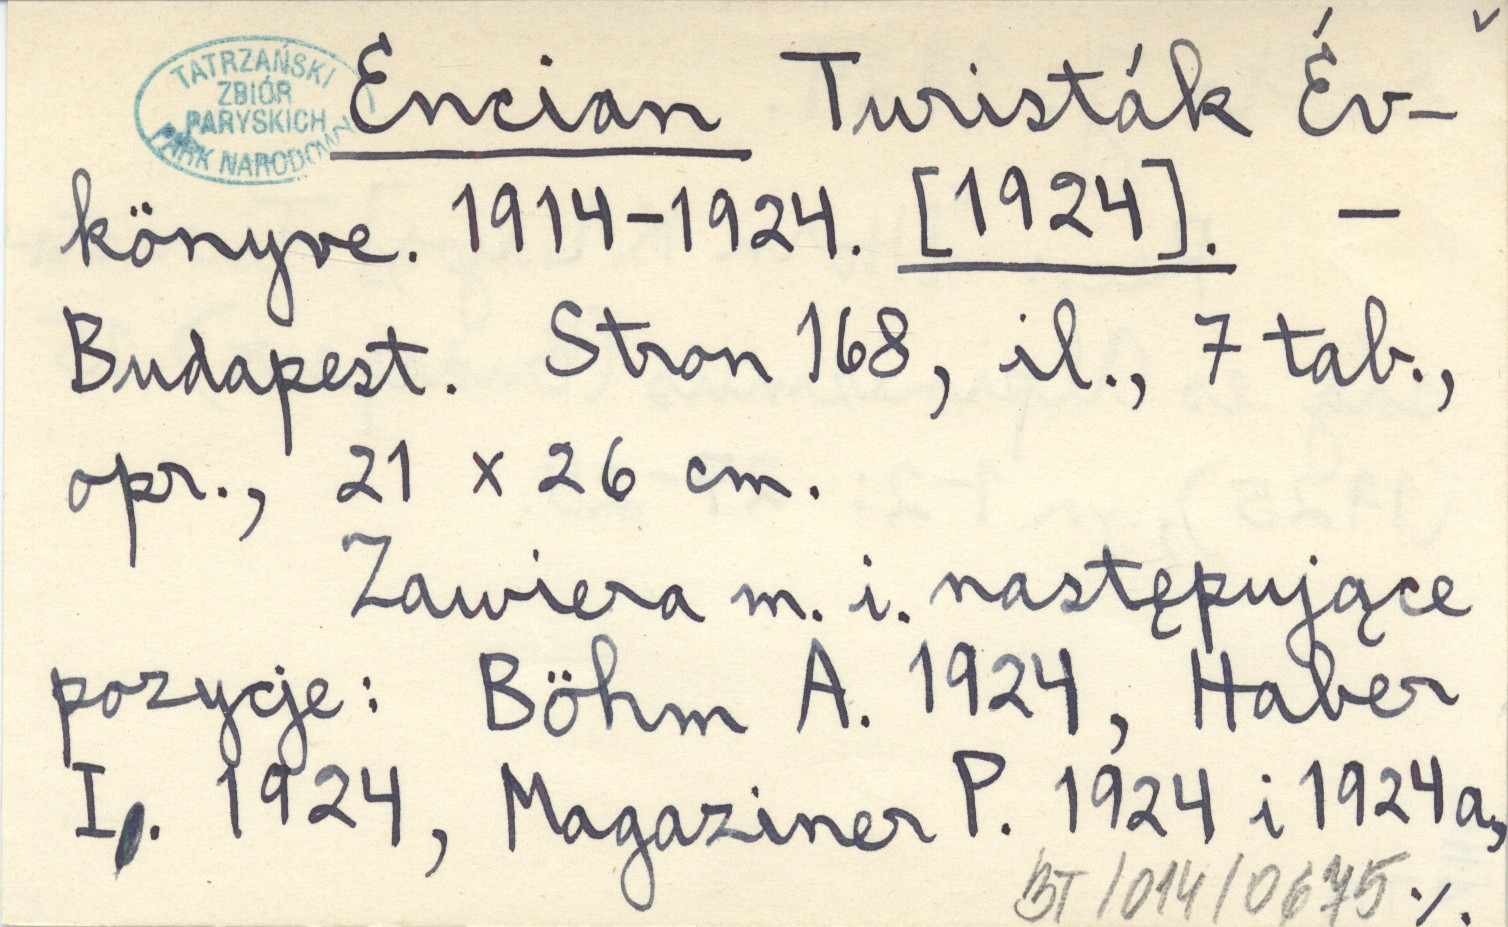 TATRZAŃSKI
ZBIÓR
PARYSKICH
PARK NARODOWY
Encian Turisták Év-
könyve. 1914-1924. [1924]. —
Budapest. Stron 168, il., 7 tab.,
opr., 21 x 26 cm.
Zawiera m. i. następujące
pozycje: Böhm A. 1924, Haber
I. 1924, Magaziner P. 1924 i 1924a,
BT/014/0675 ./.